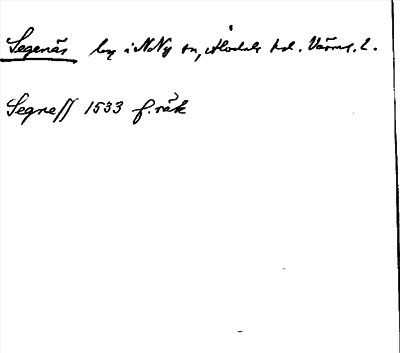 Segenäs by i N Ny sn, Älvdals hd. Värml. l.
Segneſſ 1533 f. räk